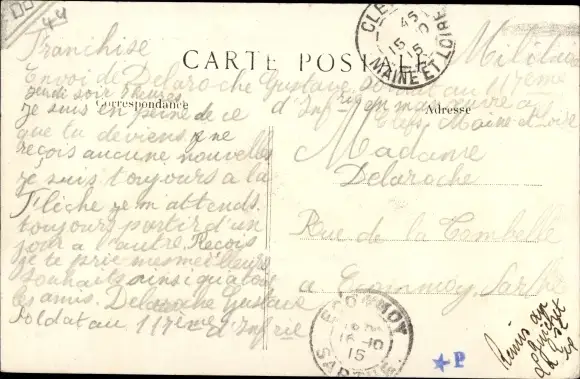 44
Franchise Militaire
CARTE POSTALE
Envoi de Delaroche Gustave Soldat au 117ème
d'Infrie en
Clefs Maine-et-Loire
Correspondance
Adresse
jeudi soir 5 heures
Je suis en peine de ce
que tu deviens je ne
reçois aucune nouvelles
je suis toujours a la
Flèche je m'attends
toujours partir d'un
jour a l'autre, Reçois
je te prie mes meilleure
souhaits ainsi qu'a tous
les amis. Delaroche Gustave
Soldat au 117ème d'Infrie
Madame
Delaroche
Rue de la
a Ecommoy, Sarthe
CLEFS
15-10
15
MAINE ET LOIRE
ECOMMOY
16-10
15
SARTHE
★P
Remis au